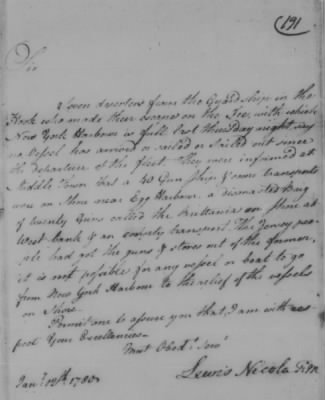 (191)
Sir
Seven deserters from the Guardship in the
Hook who made their escape on the Ice, with which
New York Harbour is full last thursday night, say
no Vessel has arrived or sailed or sailed out since
the departure of the fleet. They were informed at
Middle Town that a 40 Gun Ship & some transports
was on shore near Egg Harbour, a dismasted Brig
of twenty Guns called the Britannia on shore at
West bank & an empty transport. The Jersey peo-
ple had got the guns & stores out of the former,
it is not possible for any vessel or boat to go
from New York Harbour to the relief of the vessels
on Shore.
Permit me to assure you that I am with res-
pect Your Excellencies
Most Obedt. Servt
Lewis Nicola
Jany. 12th. 1780